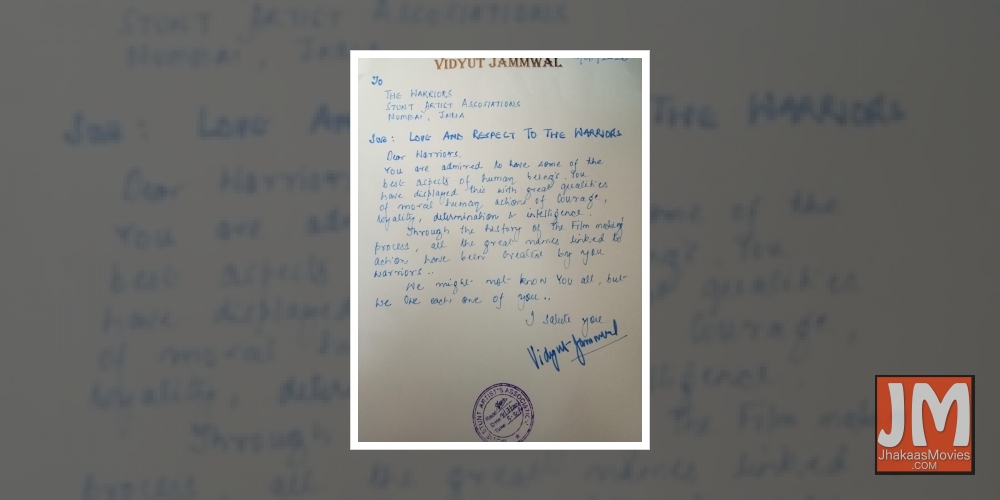 VIDYUT JAMMWAL
To
THE WARRIORS
STUNT ARTIST ASSOCIATIONS
MUMBAI, INDIA
SUB: LOVE AND RESPECT TO THE WARRIORS
Dear Warriors,
You are admired to have some of the
best aspects of human being's. You
have displayed this with great qualities
of moral human action of Courage,
loyality, determination & intelligence.
Through the history of the Film making
process, all the great names linked to
action have been created by you
warriors..
We might not know you all, but
we love each one of you..
I salute you
Vidyut Jammwal
STUNT ARTIST'S ASSOCIATION
JM
JhakaasMovies
.COM